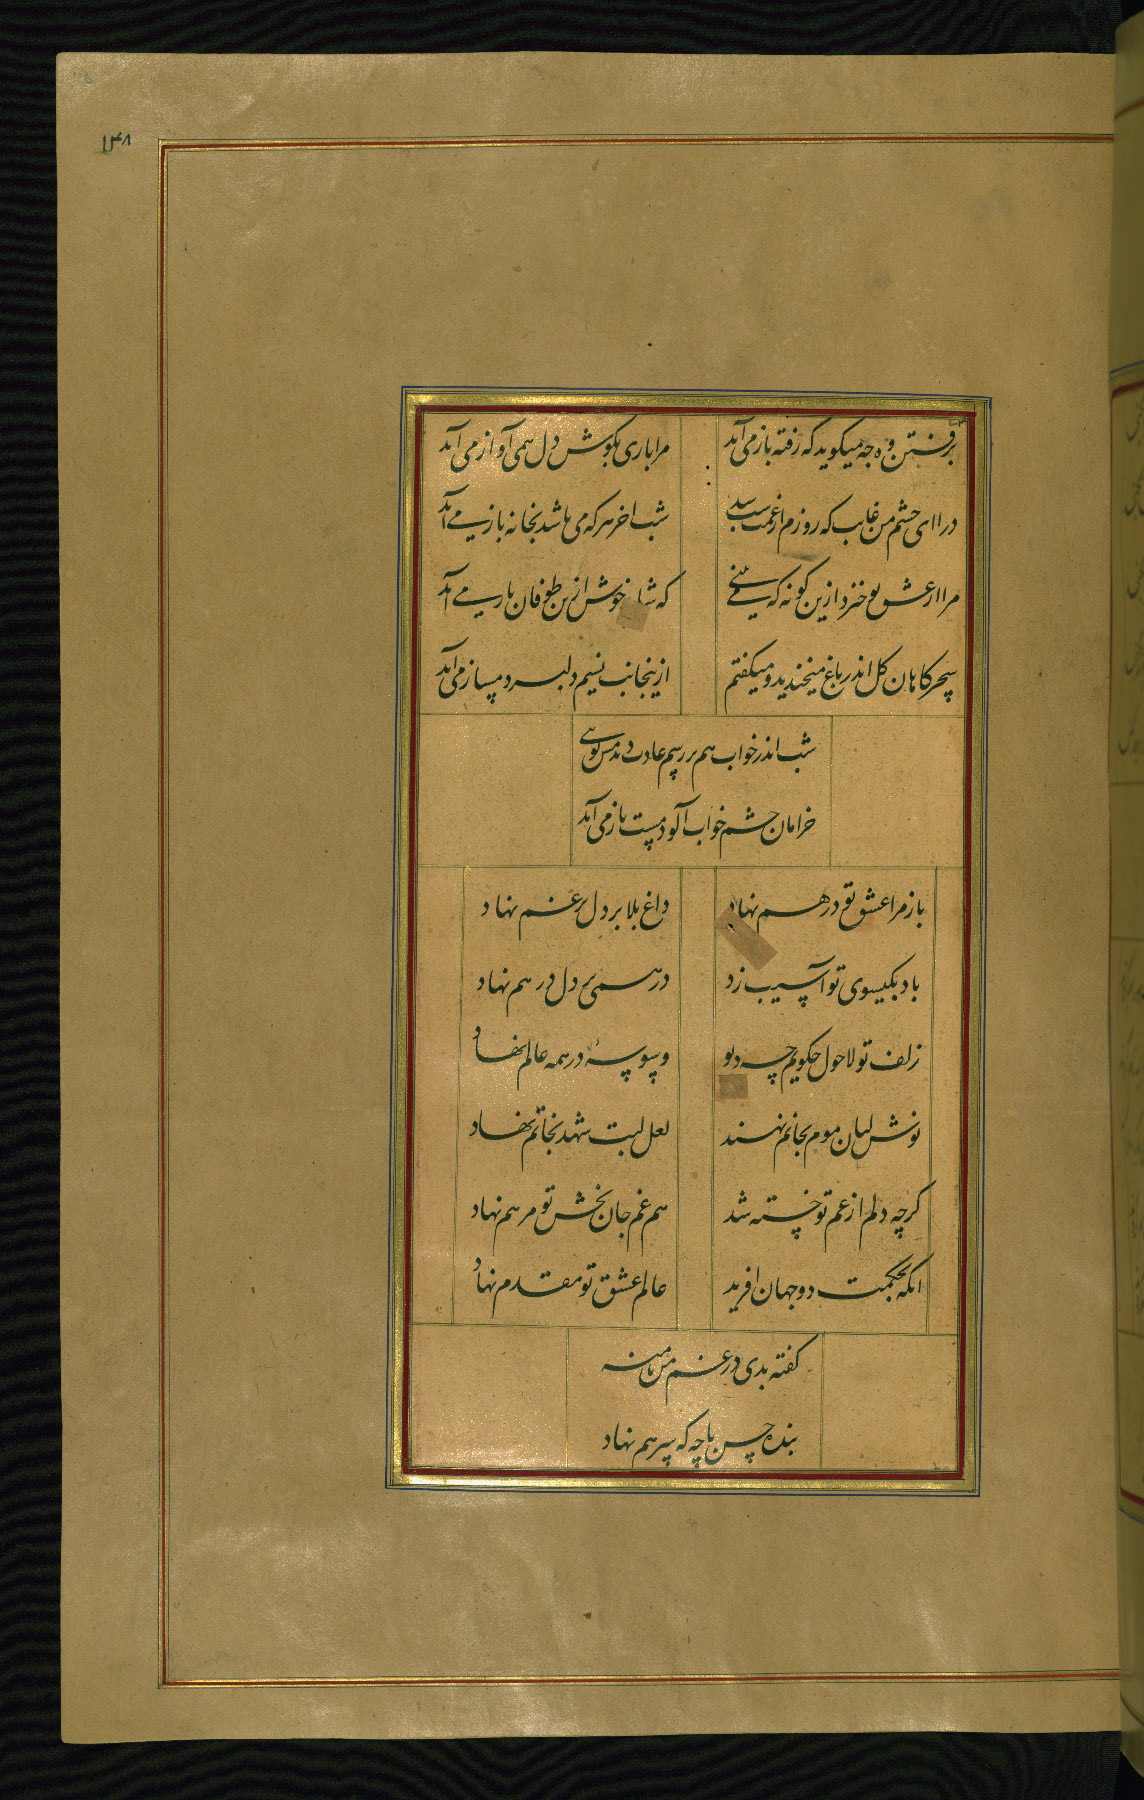 ۱۳۸
برفتن وه چه میکوید که رفته باز می آید
مرا باری بکوش دل همی آواز می آید
درا ای چشم من غایب که روزم از غمت شب شد
شب اخر هر که می باشد بخانه باز می آید
مرا از عشق تو خیزد ازین کونه که
که خوش ازین طوفان می آید
سحرکاهان کل اندر باغ میخندید و میکفتم
ازینجانب نسیم دلبر دمساز می آید
شب اندر خواب هم بر رسم عادت دیدمش کویی
خرامان چشم خواب آلود مست باز می آید
باز مرا عشق تو در هم نهاد
داغ بلا بر دل پر غم نهاد
باد بکیسوی تو آسیب زد
درهمی بر دل درهم نهاد
زلف تو لاحول چکویم چه دیو
وسوسهٔ در همه عالم نهاد
نوش لبان موم بخاتم نهند
لعل لبت شهد بخاتم نهاد
کرچه دلم از غم تو خسته شد
هم غم جان بخش تو مرهم نهاد
انکه بحکمت دو جهان افرید
عالم عشق تو مقدم نهاد
کفته بدی در غم من پا منه
بنده حسن پا چه که سر هم نهاد